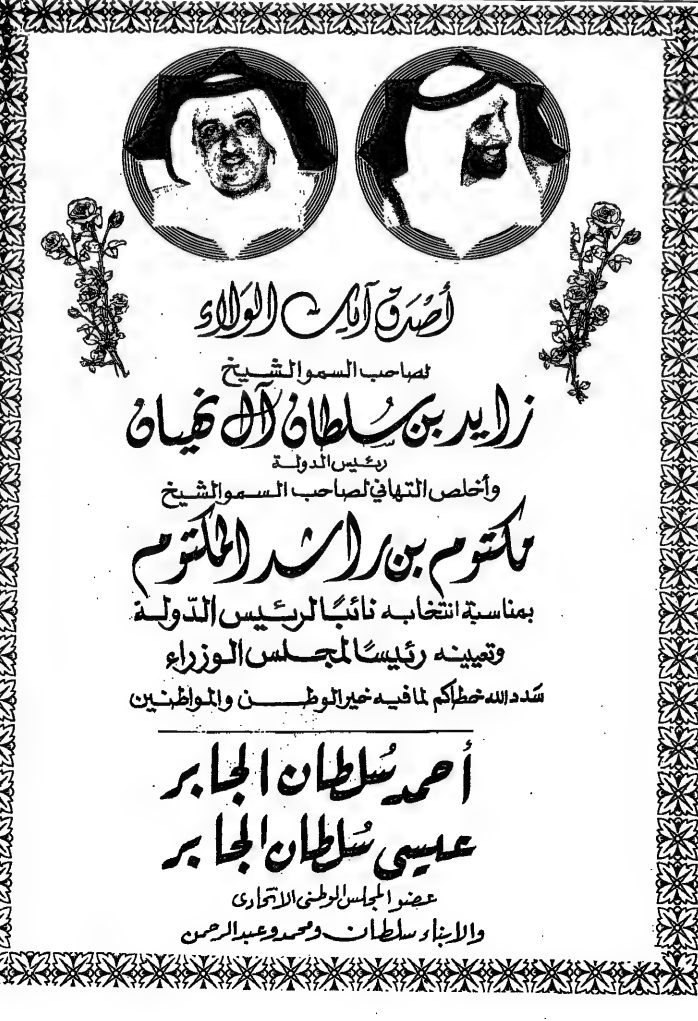 أصدق آيات الولاء
لصاحب السمو الشيخ
زايد بن سلطان آل نهيان
رئيس الدولة
وأخلص التهاني لصاحب السمو الشيخ
مكتوم بن راشد المكتوم
بمناسبة انتخابه نائبًا لرئيس الدّولة
وتعيينه رئيسًا لمجلس الوزراء
سَدد الله خطاكم لما فيه خير الوطن والمواطنين
أحمد سُلطان الجابر
عيسى سُلطان الجابر
عضو المجلس الوطني الاتحادى
والابناء سلطان ومحمد وعبد الرحمن